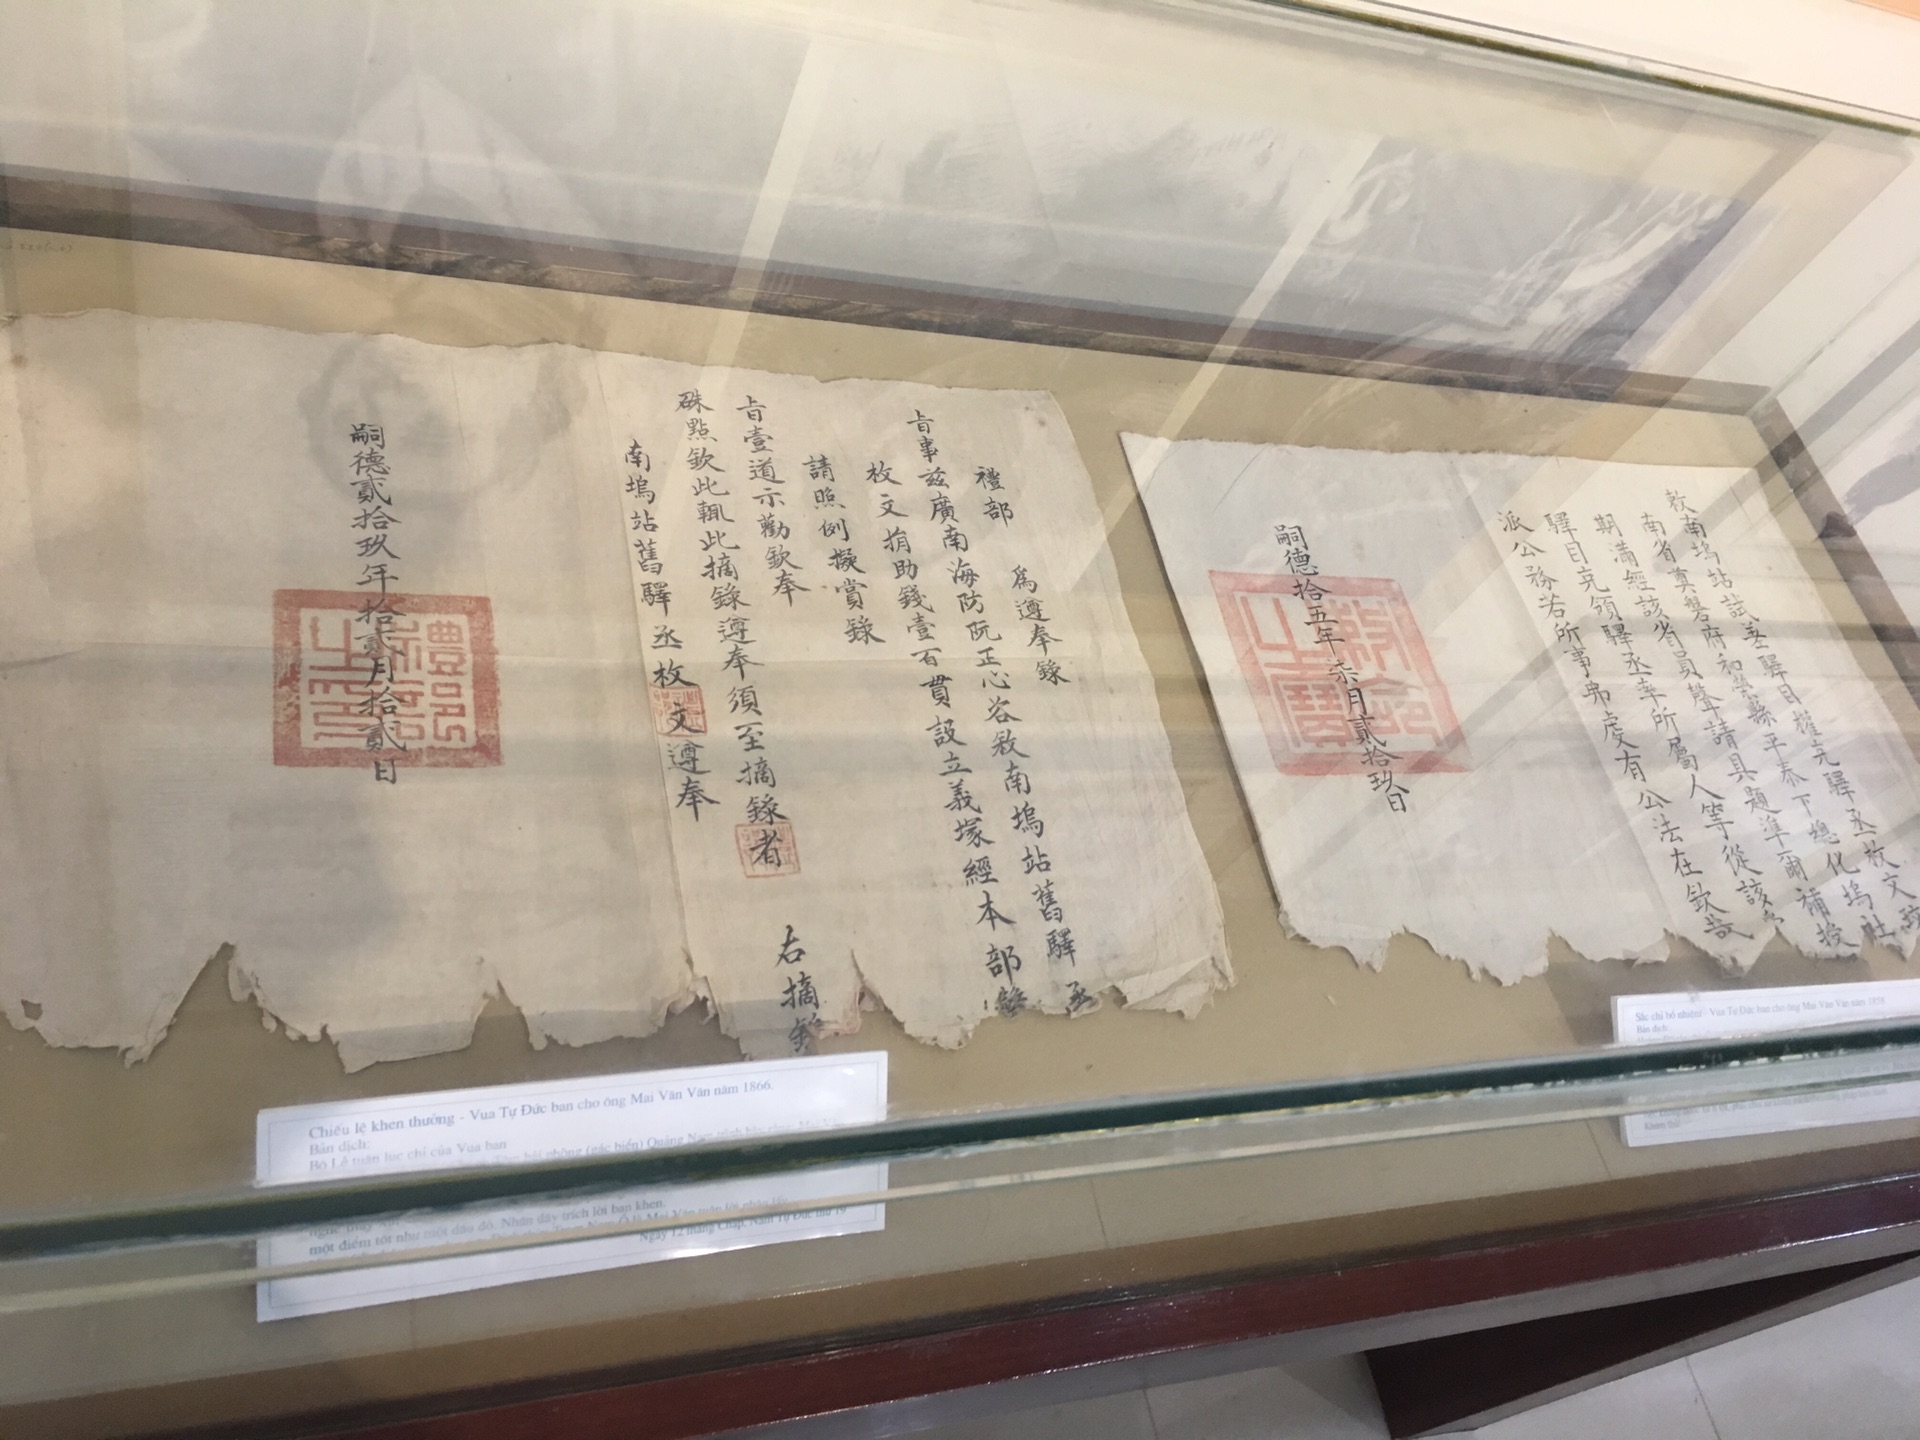 禮部 為遵奉錄
旨事茲廣南海防阮正心咨敘南塢站舊驛丞
枚文捐助錢壹百貫設立義塚經本部錄
請照例擬賞錄
旨壹道示勸欽奉
硃點欽此輒此摘錄遵奉須至摘錄者
右摘錄
南塢站舊驛丞枚文遵奉
嗣德貳拾玖年拾貳月拾貳日
禮部之印
Chiếu lệ khen thưởng - Vua Tự Đức ban cho ông Mai Văn Văn năm 1866.
Bản dịch:
Bộ Lễ tuân lục chỉ của Vua ban
(gác biển) Quảng Nam
một điểm tốt như một dấu đỏ. Nhân đây trích lời ban khen.
Ngày 12 tháng Chạp, Năm Tự Đức thứ 19
敕南塢站試差驛目權充驛丞枚文
南省奠磐府和榮縣平泰下總化塢社
期滿經該省員聲請具題準爾補授
驛目充領驛丞率所屬人等從該
派公務若所事弗虔有公法在欽哉
嗣德拾五年柒月貳拾玖日
敕命之寶
Sắc chỉ bổ nhiệm - Vua Tự Đức ban cho ông Mai Văn Văn năm 1858
Bản dịch:
Khâm thử